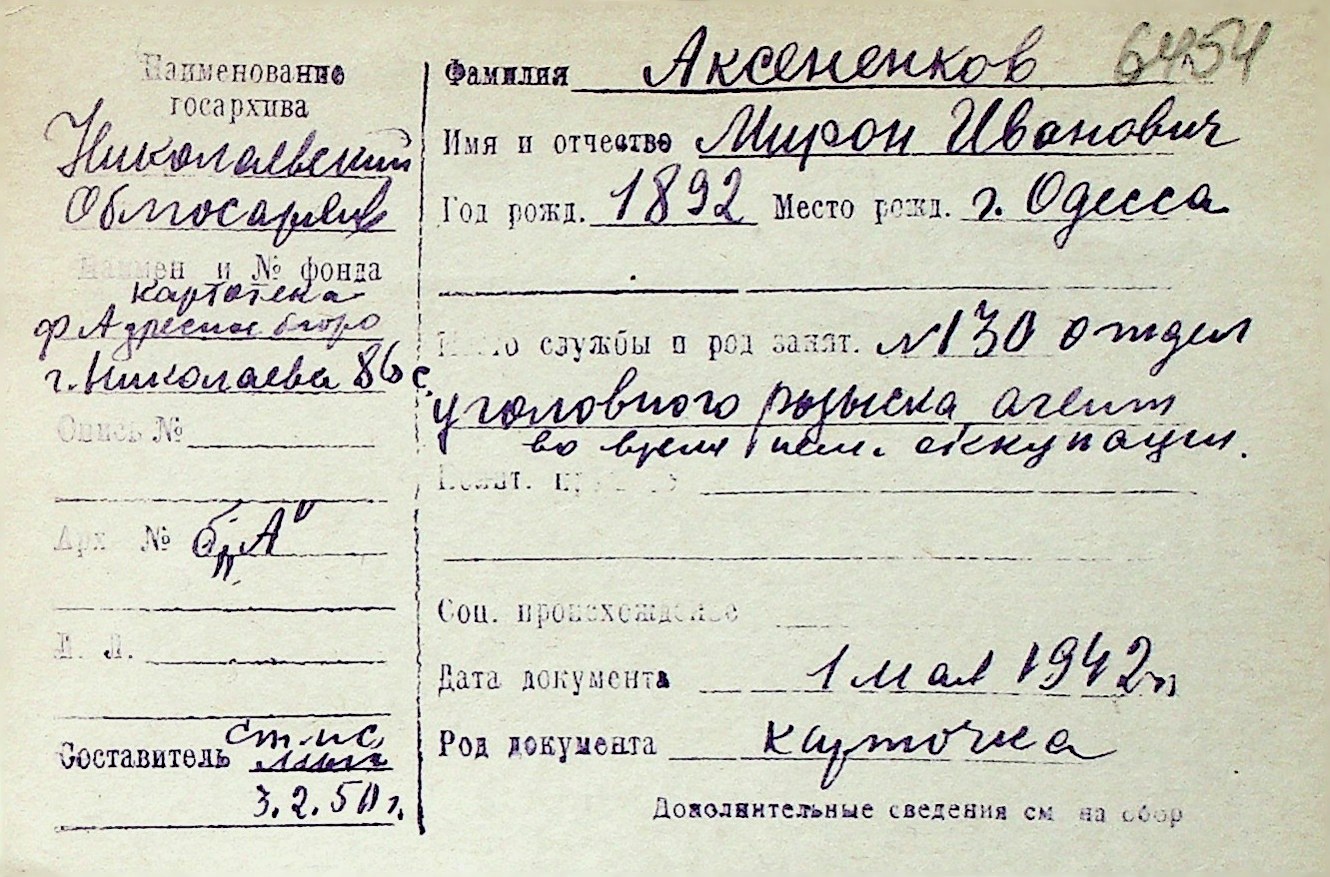 Наименование
госархива
Николаевский
Облгосархив
Наимен и № фонда
картотека
ф Адресное бюро
г. Николаева 86 с.
Опись №
Арх №  б. „А"
Л. Л.
Составитель ст. н.с.
3.2.50 г.
Фамилия Аксененков 6454
Имя и отчество Мирон Иванович
Год рожд. 1892 Место рожд. г. Одесса
службы и род занят. № 130 отдел
уголовного розыска агент
во время нем. оккупации.
Соц. происхождение
Дата документа 1 мая 1942 г.
Род документа карточка
Дополнительные сведения см на обор